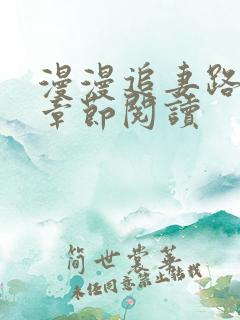 漫漫追妻路
章節閱讀
簡世裳華
未经同意禁止转载